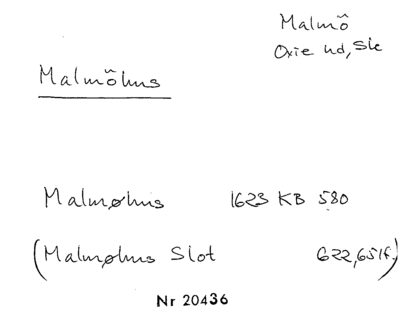 Malmö
Oxie hd, Sk
Malmöhus
Malmøhus 1623 KB 580
(Malmøhus Slot 622, 651f.)
Nr 20436